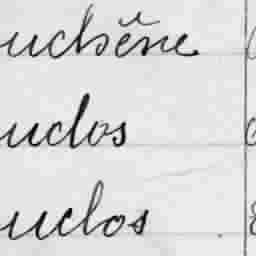 uchêne
uclos
uclos